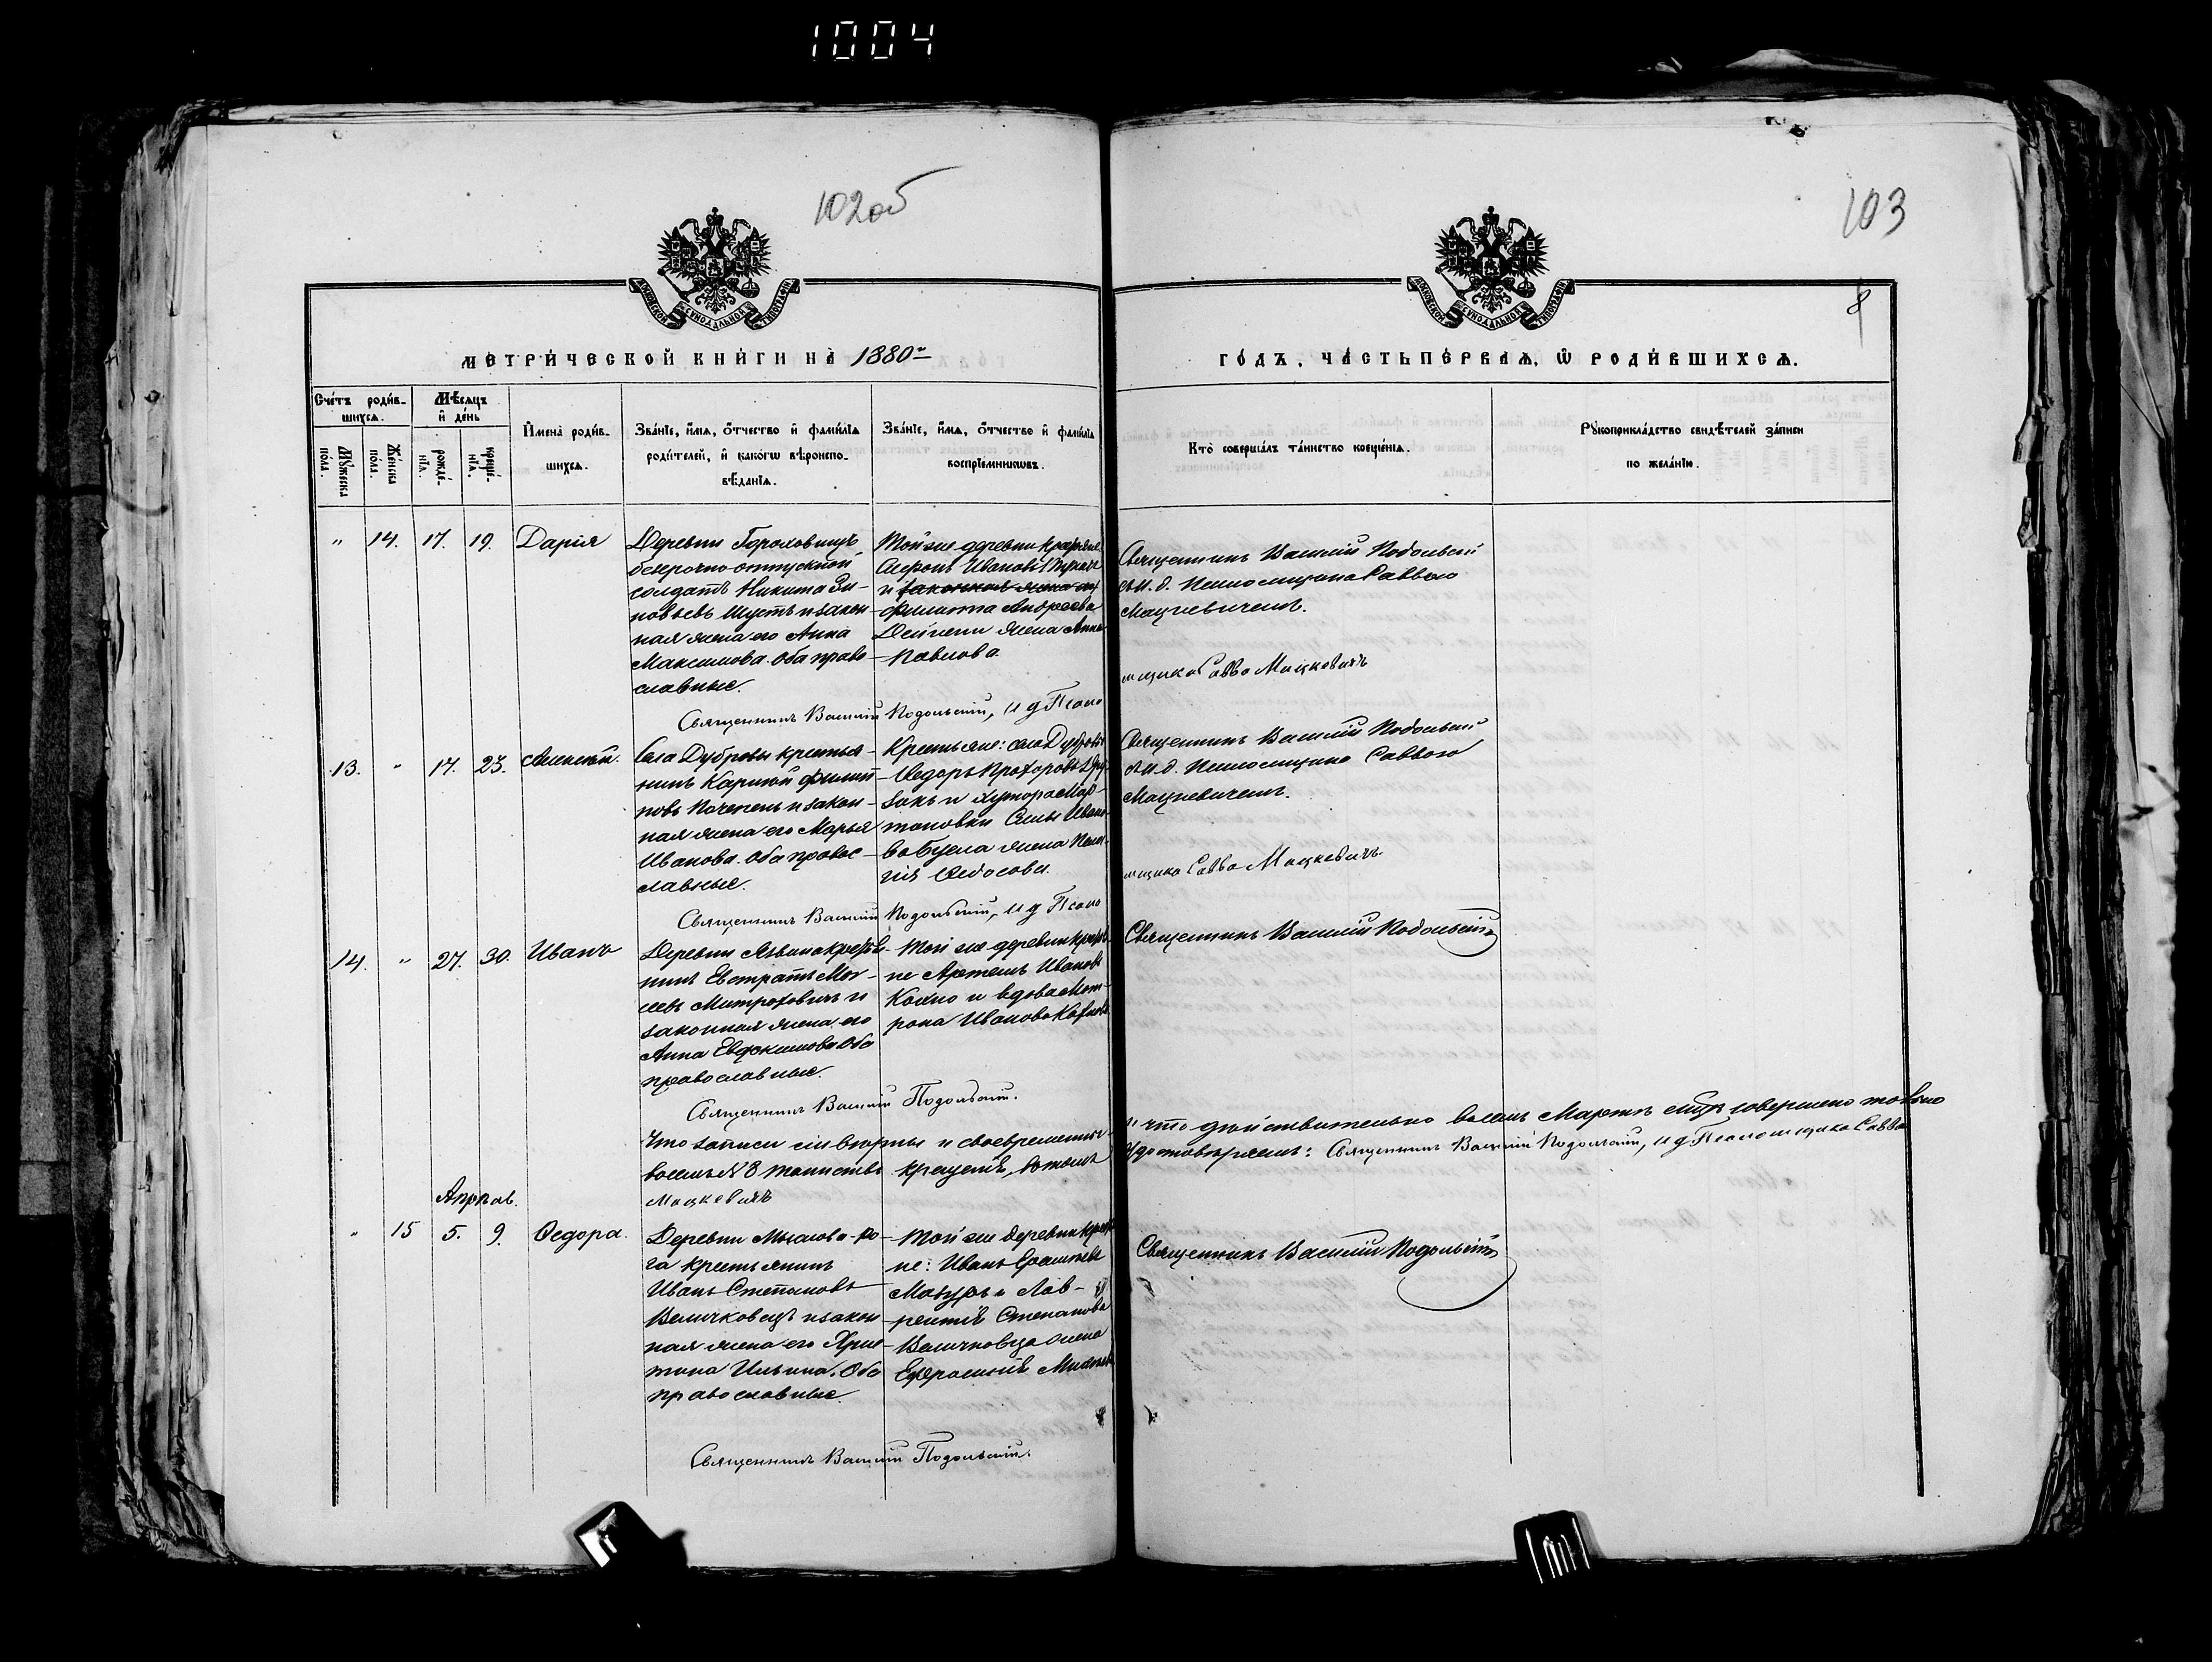 1004
102об
103
8
МОСКОВСКОЙ СѴНОДАЛЬНОЙ ТИПОГРАФІИ
МОСКОВСКОЙ СѴНОДАЛЬНОЙ ТИПОГРАФІИ
МЕТРИ́ЧЕСКОЙ КНИ́ГИ НА̀ 1880 г
ГО́ДЪ, ЧА́СТЬ ПЕ́РВАѦ, Ѿ РОДИ́ВШИХСѦ.
Сче́тъ роди́в-
шихсѧ.
Мꙋ́жеска по́ла.
Же́нска по́ла.
Мѣ́сѧцъ и҆ де́нь
рожде́-нїѧ.
креще́-нїѧ.
И҆мена̀ роди́в-
шихсѧ.
Зва́нїе, и҆́мѧ, ѻ҆́тчество и҆ фамѝлїѧ
роди́телей, и҆ како́гѡ вѣроиспо-
вѣ́данїѧ.
Зва́нїе, и҆́мѧ, ѻ҆́тчество и҆ фамѝлїѧ
воспрїе́мникѡвъ.
Кто̀ соверша́лъ та́инство креще́нїѧ.
Рꙋкоприкла́дство свидѣ́телей за́писи
по жела́нїю.
" 14. 17. 19. Дарія
Деревни Гороховищъ
безсрочно-отпускной
солдатъ Никита Зи-
новьевъ Шустъ и закон-
ная жена его Анна
Максимова. Оба право-
славные.
Той же деревни крестьяне
Ивановъ
и законная жена его
Филиппа Андреева
жена Анна
Павлова
Священникъ Василій Подольскій
съ И. д. Псаломщика Саввою
Мацкевичемъ.
Священникъ Василій Подольскій, И д Псало
мщика Савва Мацкевичъ
13. " 17. 23. Алексѣй.
Села Дубровы крестья-
нинъ Филип-
повъ и закон-
ная жена его Марья
Иванова. Оба правос-
лавные.
Крестьяне: села Дубровы
Ѳедоръ Прохоровъ
и хутора Мар-
тоновки Ивано-
ва жена Пела-
гія Ѳедосова.
Священникъ Василій Подольскій
съ И. д. Псаломщика Саввою
Мацкевичемъ.
Священникъ Василій Подольскій, И д Псало
мщика Савва Мацкевичъ.
14. " 27. 30. Иванъ
Деревни крестья-
нинъ Евстратій Мои-
сеевъ Митроховичъ и
законная жена его
Анна Евдокимова Оба
православные.
Той же деревни крестья
не Артемъ Ивановъ
и вдова Мот-
рона Иванова
Священникъ Василій Подольскій
Священникъ Василій Подольскій.
Что записи сіи вѣрны и своевременны и что дѣйствительно въ семъ Мартѣ мѣсяцѣ совершено только
восемь № 8 таинствъ крещенія, въ томъ удостовѣряемъ: Священникъ Василій Подольскій, И д Псаломщика Савва
Мацкевичъ
Апрѣль.
" 15 5. 9. Ѳедора.
Деревни Мыслова-Ро-
га крестьянинъ
Иванъ Степановъ
Величковецъ и закон-
ная жена его Хрис-
тина Ильина. Оба
православные.
Той же деревни крестья
не: Иванъ
Мазуръ и Лав-
рентія Степанова
Величковца жена
Ефросинія
Священникъ Василій Подольскій
Священникъ Василій Подольскій.